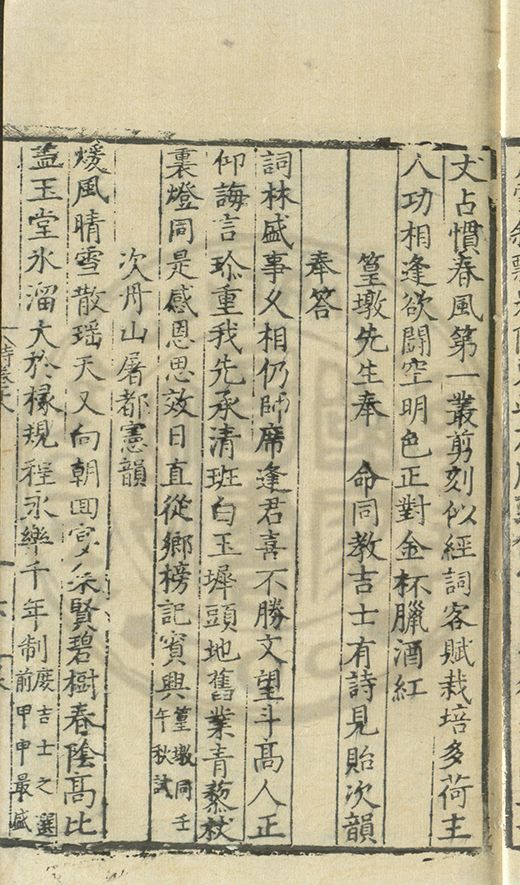 丈占慣春風第一叢剪刻似經詞客賦栽培多荷主
人功相逢欲鬪空明色正對金杯臘酒紅
篁墩先生奉 命同教吉士有詩見貽次韻
奉答
詞林盛事久相仍師席逢君喜不勝文望斗高人正
仰誨言珍重我先承清班白玉墀頭地舊業青藜杖
裏燈同是感恩思效日直從鄉榜記賓興篁墩同壬午秋試
次丹山屠都憲韻
煖風晴雪散瑶天又向朝回宴衆賢碧樹春陰高比
蓋玉堂氷溜大於椽規程永樂千年制庶吉士之選前甲申最盛